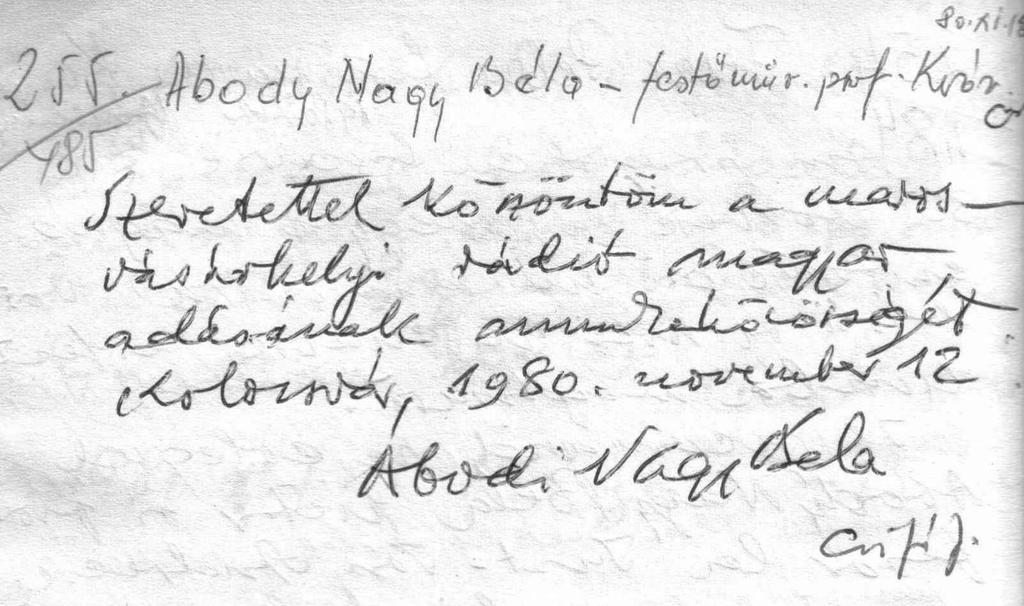 80.XI.12
255. Abody Nagy Béla – festőműv. prof. Kvár.
485
Szeretettel köszöntöm a maros–
vásárhelyi rádió magyar
adásának munkaközösségét.
Kolozsvár, 1980. november 12
Abodi Nagy Béla